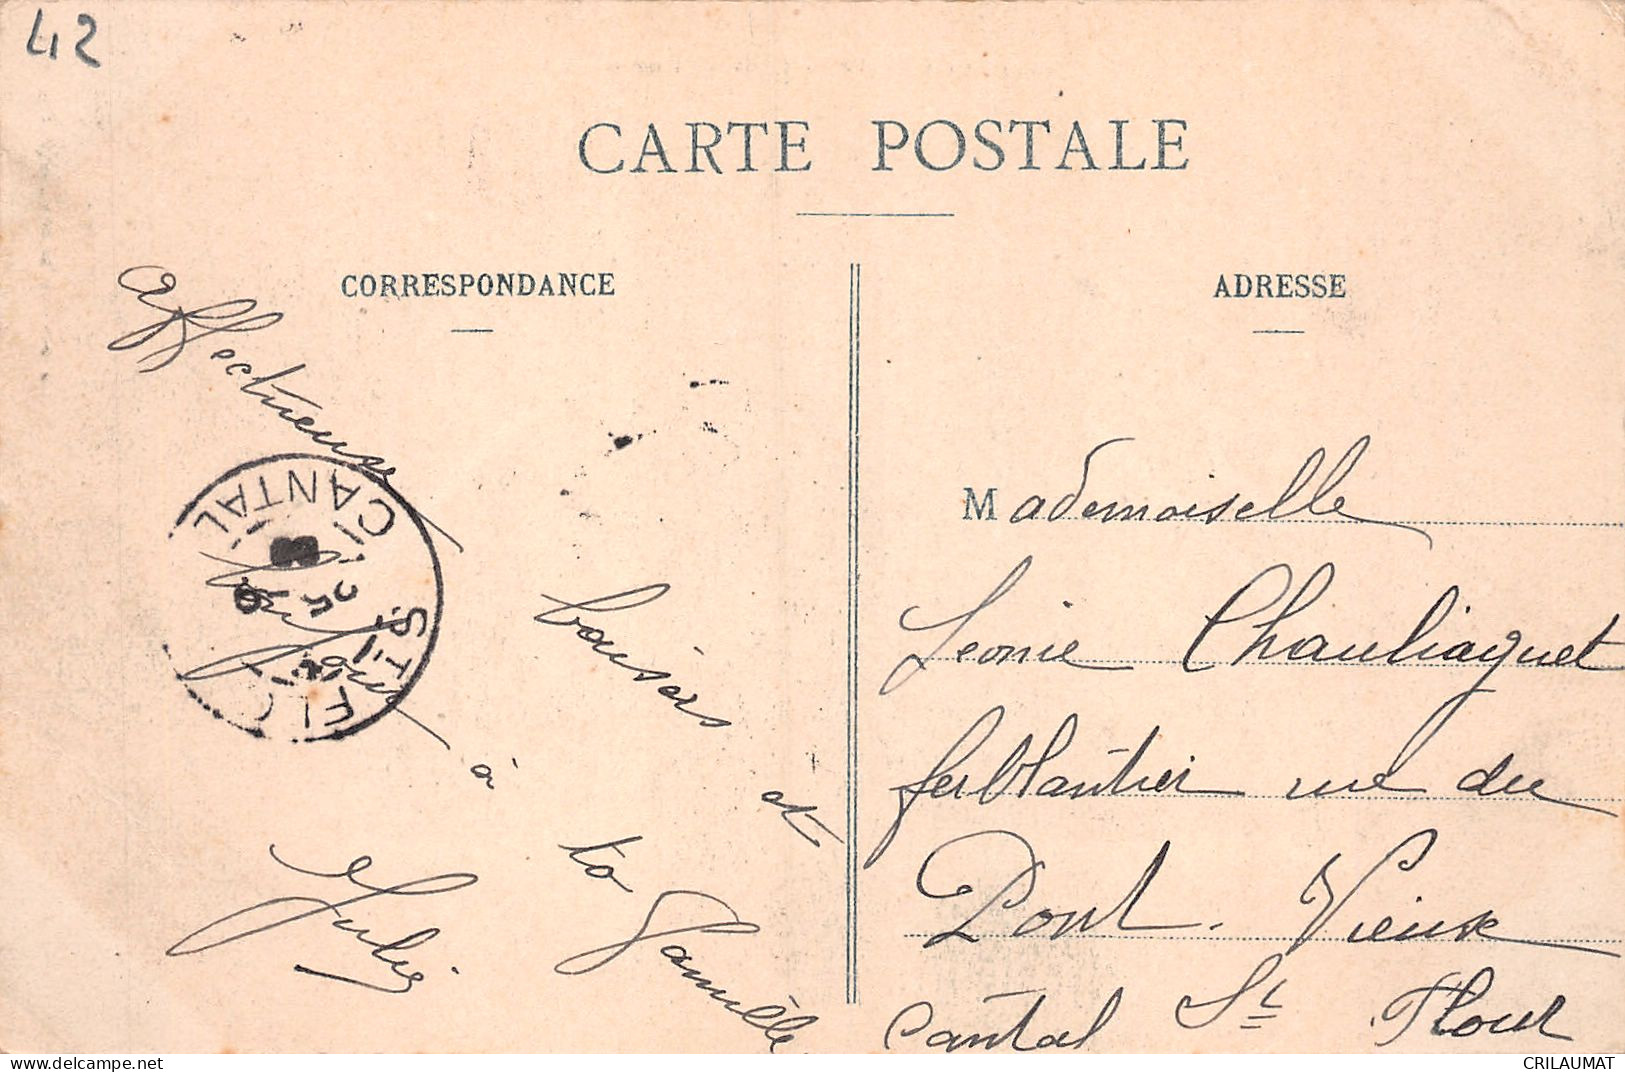 42
CARTE POSTALE
CORRESPONDANCE
ADRESSE
Affectueux
baisers et
bonjour à
ta famille
Julie
CANTAL
ST-FLO
25
Mademoiselle
Leonie Chauliaguet
ferblantier rue du
Pont. Vieux
Cantal St Flour
www.delcampe.net
CRILAUMAT